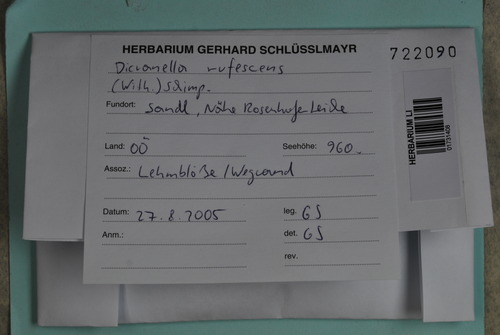 HERBARIUM GERHARD SCHLÜSSLMAYR
722090
Dicranella rufescens
(With.) Schimp.
Fundort: Sandl, Nähe Rosenhofer Teiche
Land: OÖ Seehöhe: 960
Assoz.: Lehmblöße/Wegrand
Datum: 27.8.2005 leg. GS
Anm.: det. GS
rev.
HERBARIUM LI
01731408